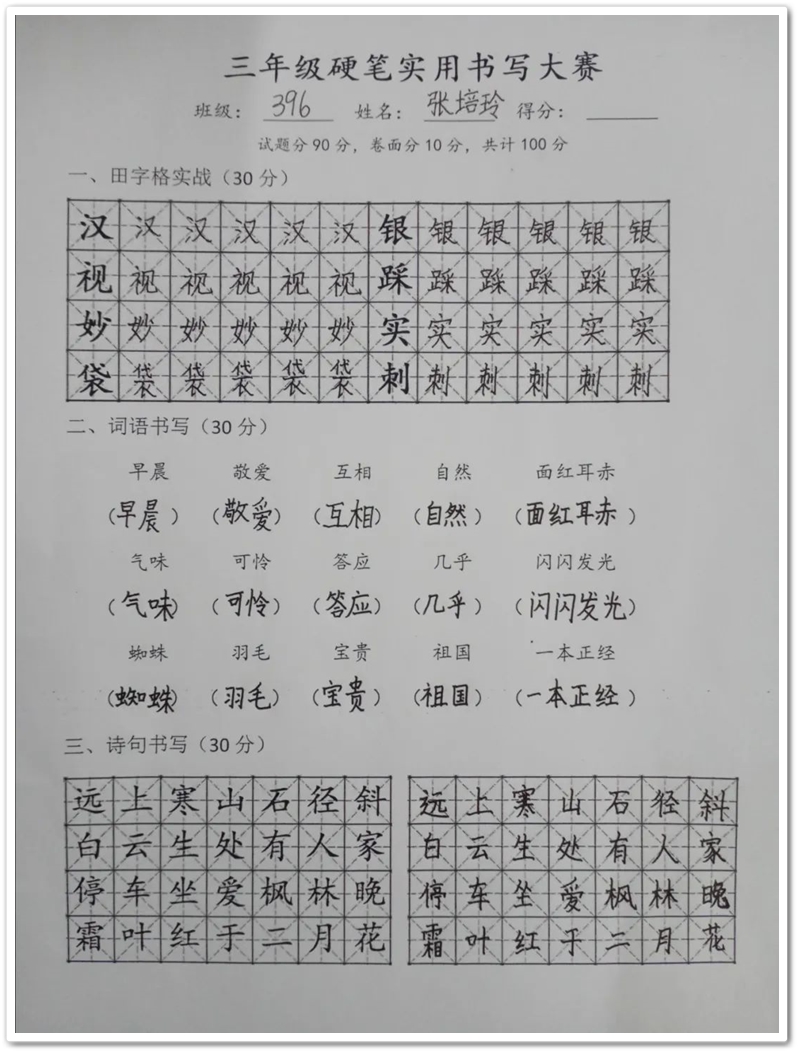 三年级硬笔实用书写大赛
班级：396 姓名：张培玲 得分：
试题分90分，卷面分10分，共计100分
一、田字格实战（30分）
汉汉汉汉汉汉银银银银银银
视视视视视视踩踩踩踩踩踩
妙妙妙妙妙妙实实实实实实
袋袋袋袋袋袋刺刺刺刺刺刺
二、词语书写（30分）
早晨 敬爱 互相 自然 面红耳赤
（早晨）（敬爱）（互相）（自然）（面红耳赤）
气味 可怜 答应 几乎 闪闪发光
（气味）（可怜）（答应）（几乎）（闪闪发光）
蜘蛛 羽毛 宝贵 祖国 一本正经
（蜘蛛）（羽毛）（宝贵）（祖国）（一本正经）
三、诗句书写（30分）
远上寒山石径斜 远上寒山石径斜
白云生处有人家 白云生处有人家
停车坐爱枫林晚 停车坐爱枫林晚
霜叶红于二月花 霜叶红于二月花